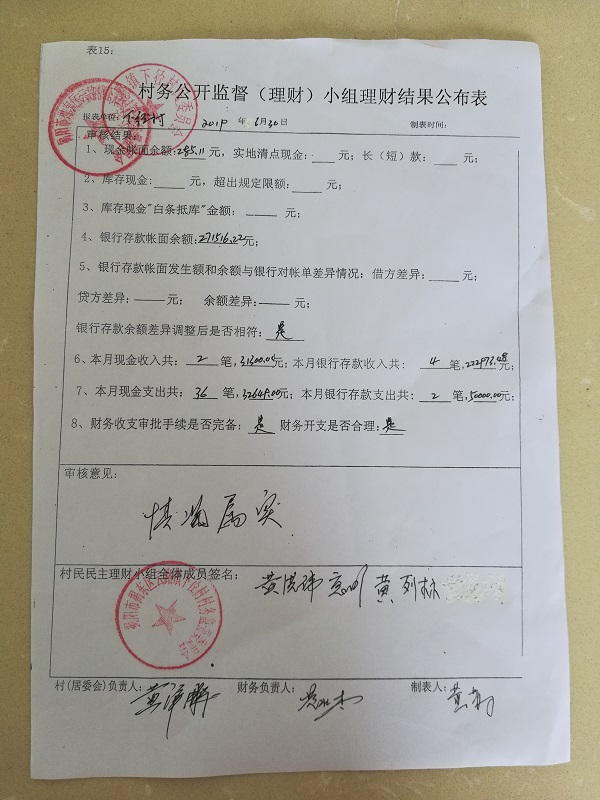 表15：
村务公开监督（理财）小组理财结果公布表
报表单位：下径村 2019 年 6月30日 制表时间：
审核结果：
1、现金帐面余额：285.11元，实地清点现金：元，长（短）款：元；
2、库存现金：元，超出规定限额：元；
3、库存现金"白条抵库"金额：元；
4、银行存款帐面余额：271516.22元；
5、银行存款帐面发生额和余额与银行对帐单差异情况：借方差异：元；
贷方差异：——元； 余额差异：——元；
银行存款余额差异调整后是否相符：是
6、本月现金收入共：2 笔，31300.00元；本月银行存款收入共：4 笔，222973.48元；
7、本月现金支出共：36 笔，32649.00元；本月银行存款支出共：2 笔，50000.00元；
8、财务收支审批手续是否完备：是 财务开支是否合理：是
审核意见：
情况属实
村民民主理财小组全体成员签名：
村(居委会)负责人： 财务负责人： 制表人：